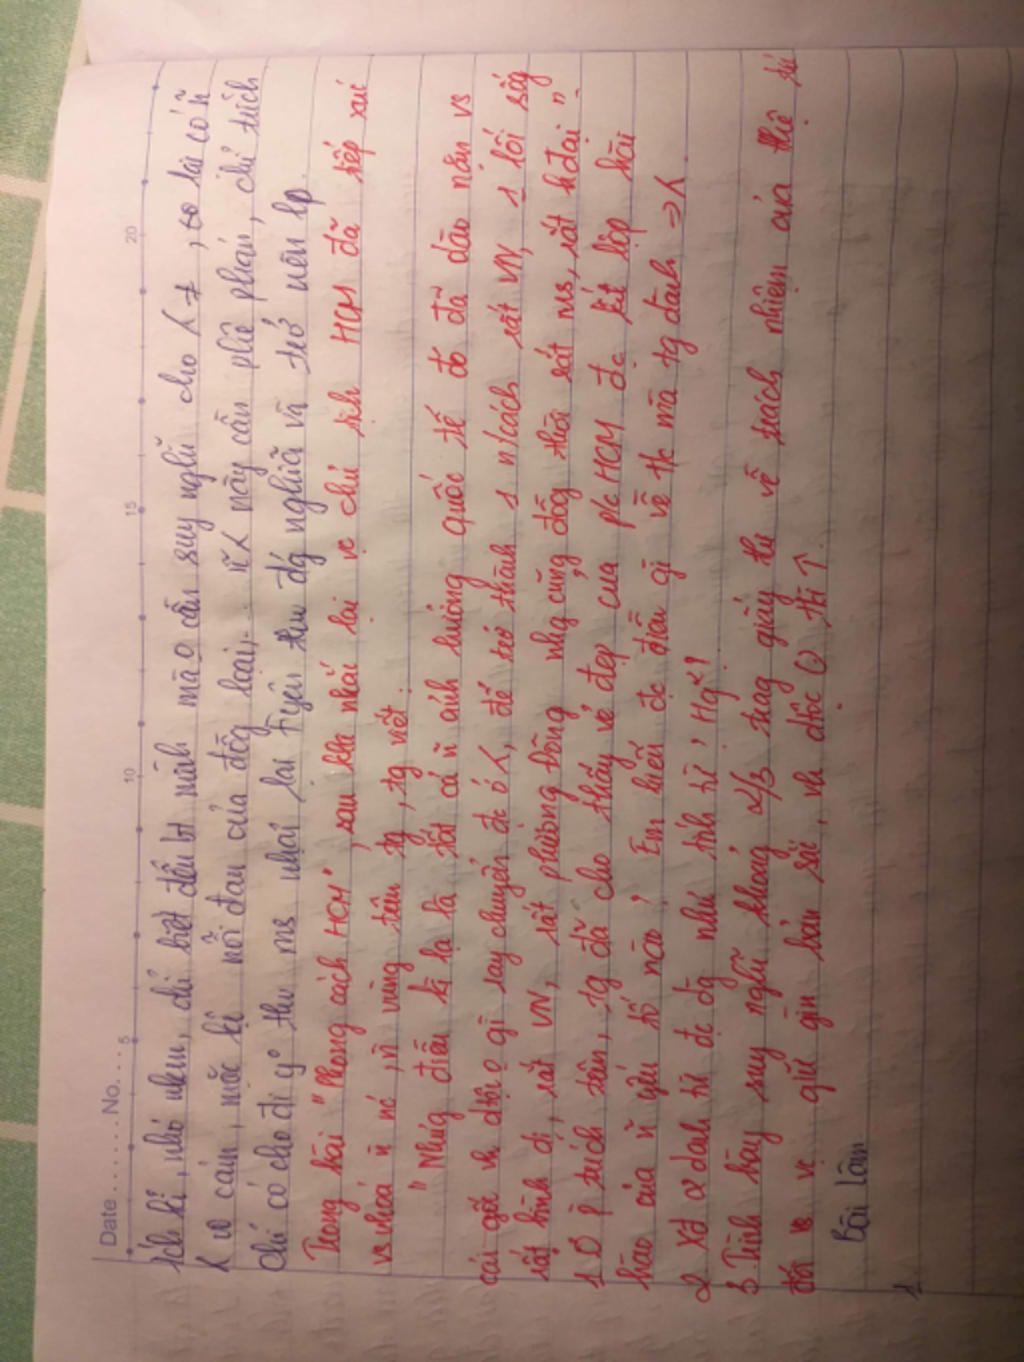 Date.......No....
5 10 15 20
ích kỉ, nhỏ nhen, chỉ biết đến bt mình mà o cần suy nghĩ cho
cảm, mặc kệ nỗi đau của đồg loại. này cần phê phán, chỉ trích
chỉ có cho đi yº thw ms nhận lại Fyêu thw đg nghĩa và trở nên
Trong bài "Phong cách HCM", sau khi nhắc lại vc chủ tịch HCM đã tiếp xúc
vs vhoá ñ nc, ñ vùng trên tg, tg viết:
"Nhưg điều kì lạ là tất cả ñ ảnh hưởng quốc tế đó đã đào nắn vs
cái gốc vh dtộc o gì lay chuyển đc ở, để trở thành 1 n/cách rất VN, 1 lối sốg
rất bình dị, rất VN, rất phương Đông nhg cũng đồg thời rất ms, rất hđại"
1 Ở P trích trên, tg đã cho thấy vẻ đẹp của p/c HCM đc kết hợp hài
hào của ñ yếu tố nào? Em hiểu đc điều gì về t/c mà tg dành =>
2 Xđ 2 danh từ đc dg như tính từ,
3 Trình bày suy nghĩ khoảng 2/3 trag giấy thi về trách nhiệm của thế hệ
vs vc giữ gìn bản sắc vh dtộc
Bài làm
1